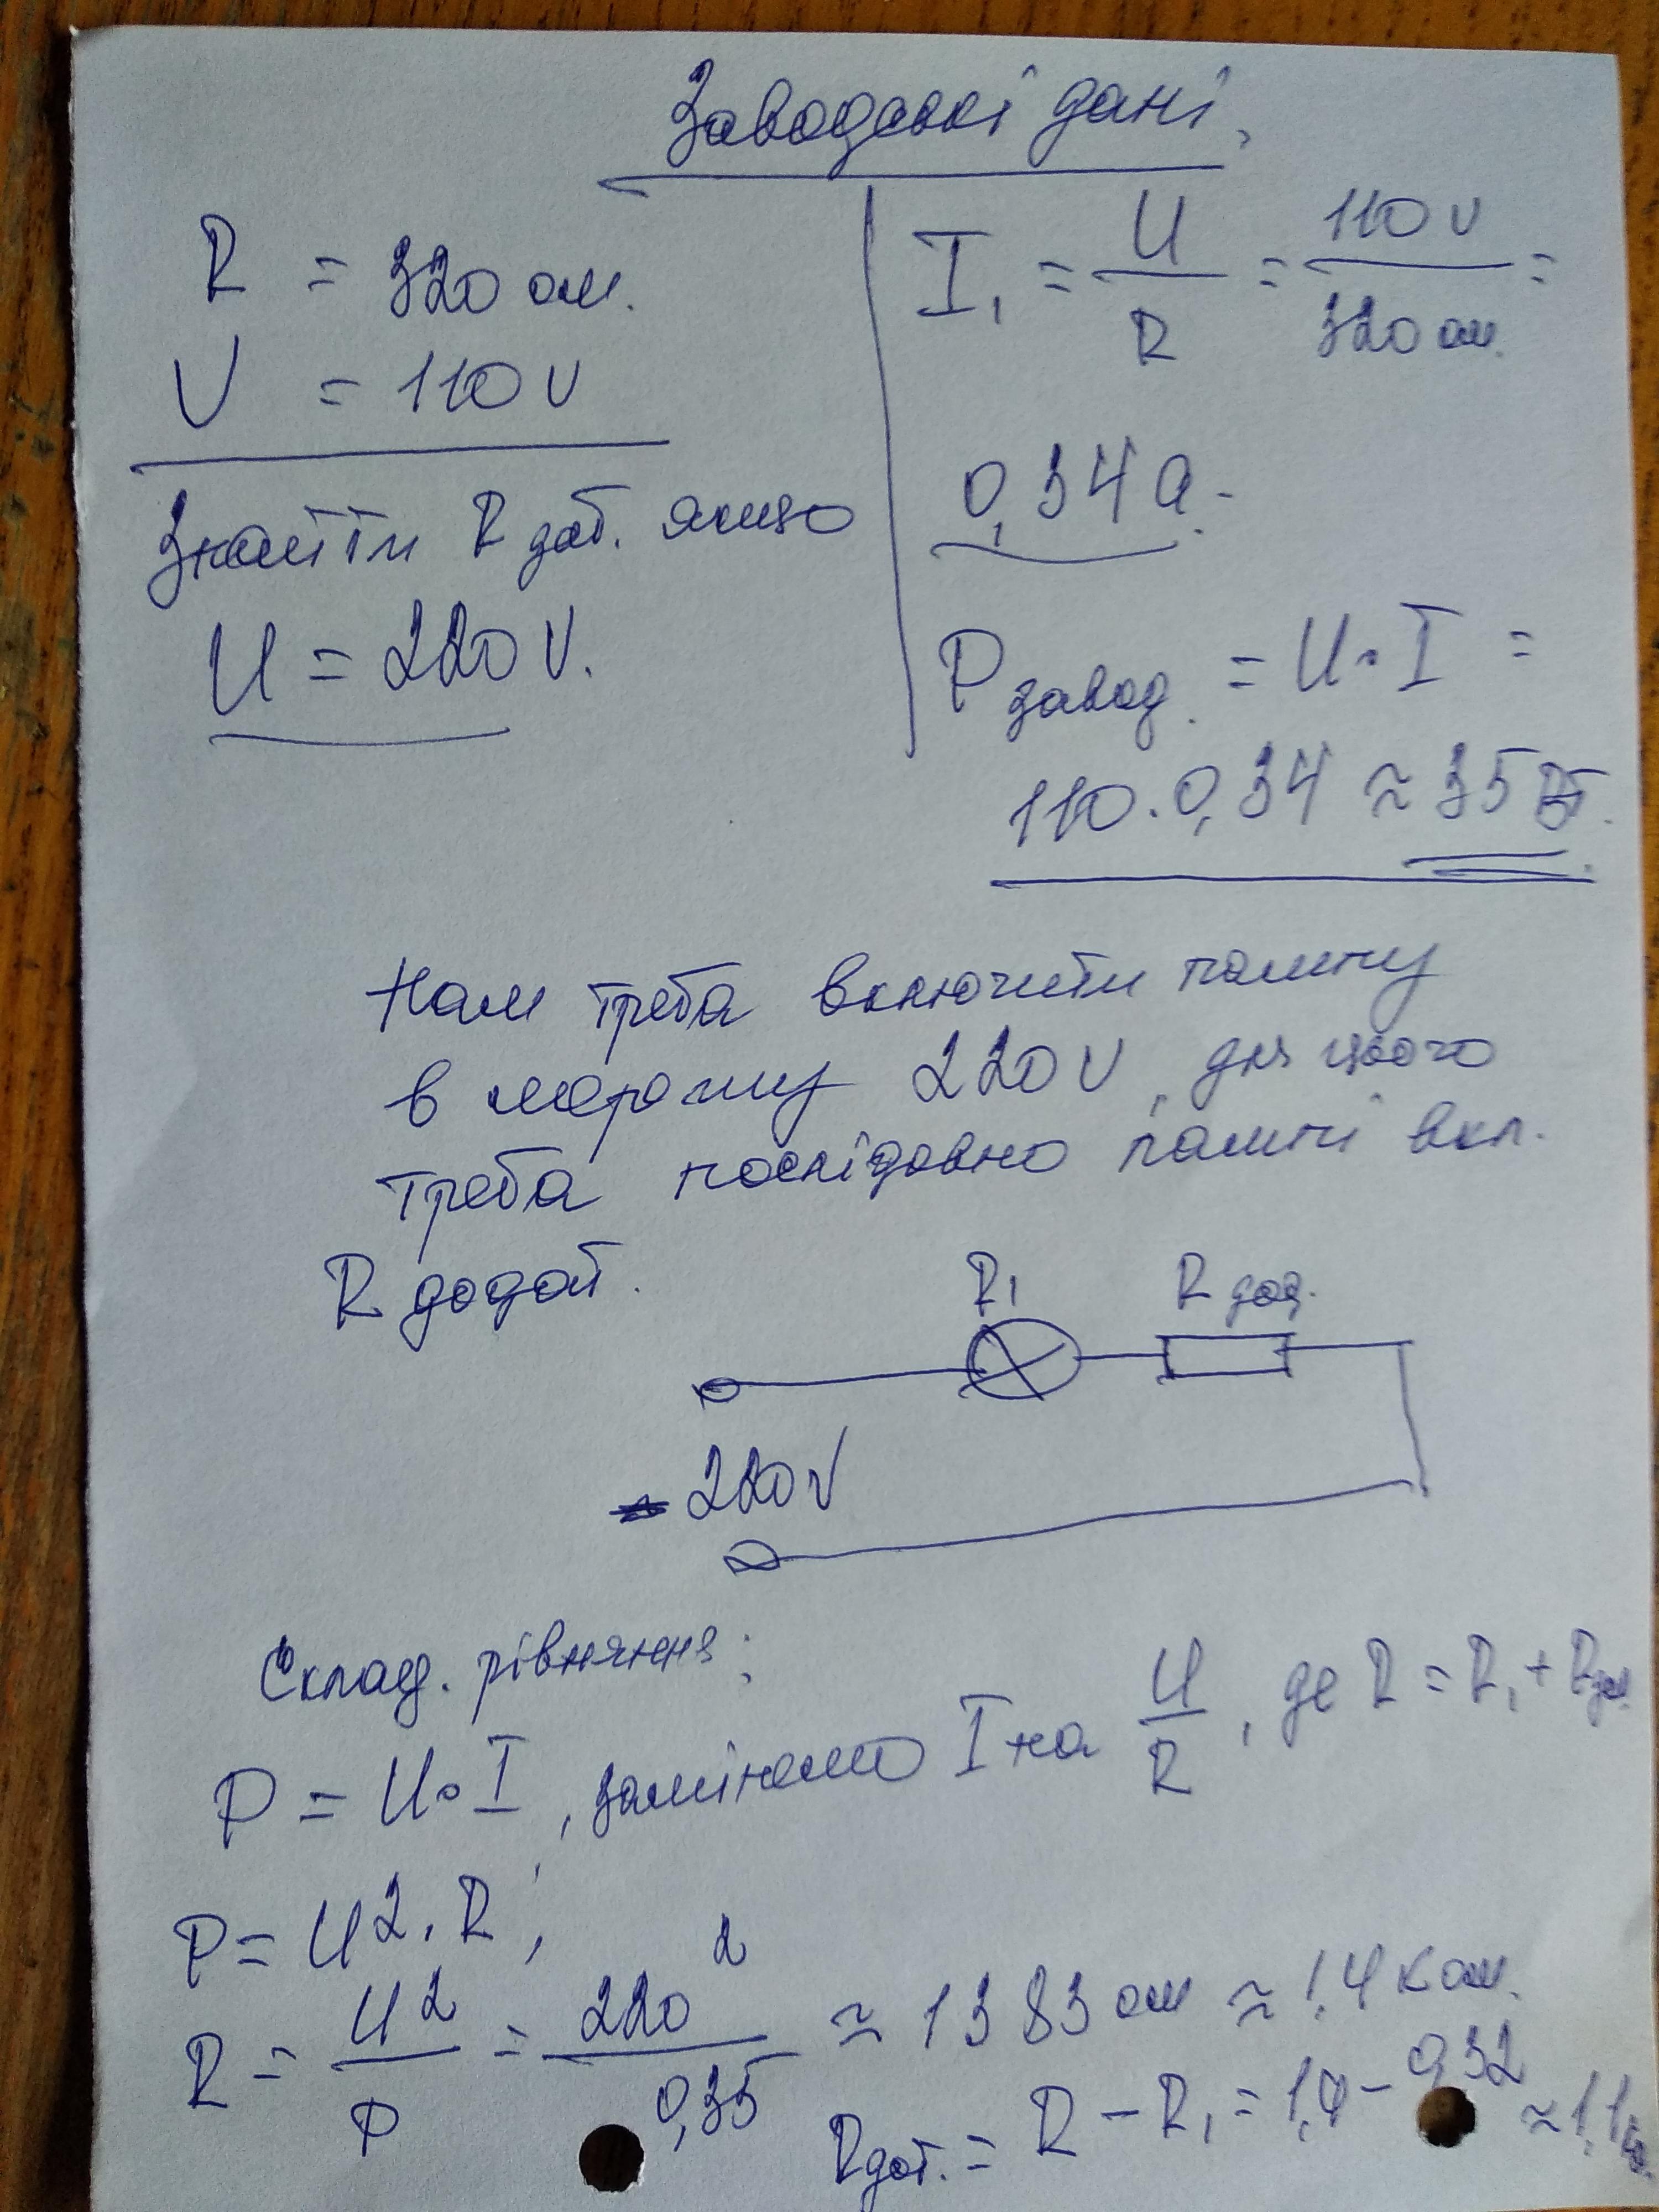 Заводські дані,
R = 320 ом.
U = 110 V
Знайти R доб. якщо
U = 220 V.
I₁ = U/R = 110 V/320 ом. =
0,34 а.
P завод. = U · I =
110 · 0,34 ≈ 35 Вт.
Нам треба включити лампу
в мережу 220 V, для цього
треба послідовно лампі вкл.
R додат.
R₁ R дод.
220 V
Склад. рівняння:
P = U · I, замінемо I на U/R, де R = R₁ + R
P = U² · R,
R = U²/P = 220²/0,35 ≈ 1383 ом ≈ 1,4 к ом.
R дот. = R - R₁ = 1,4 - 0,32 ≈ 1,1